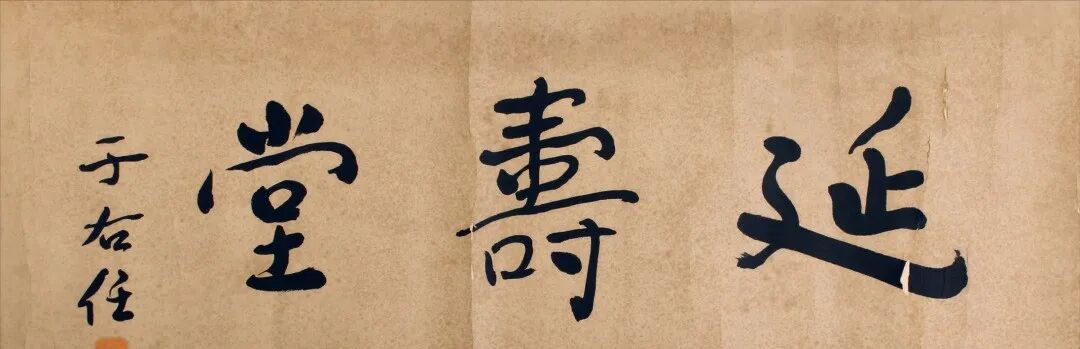 延壽堂
于右任